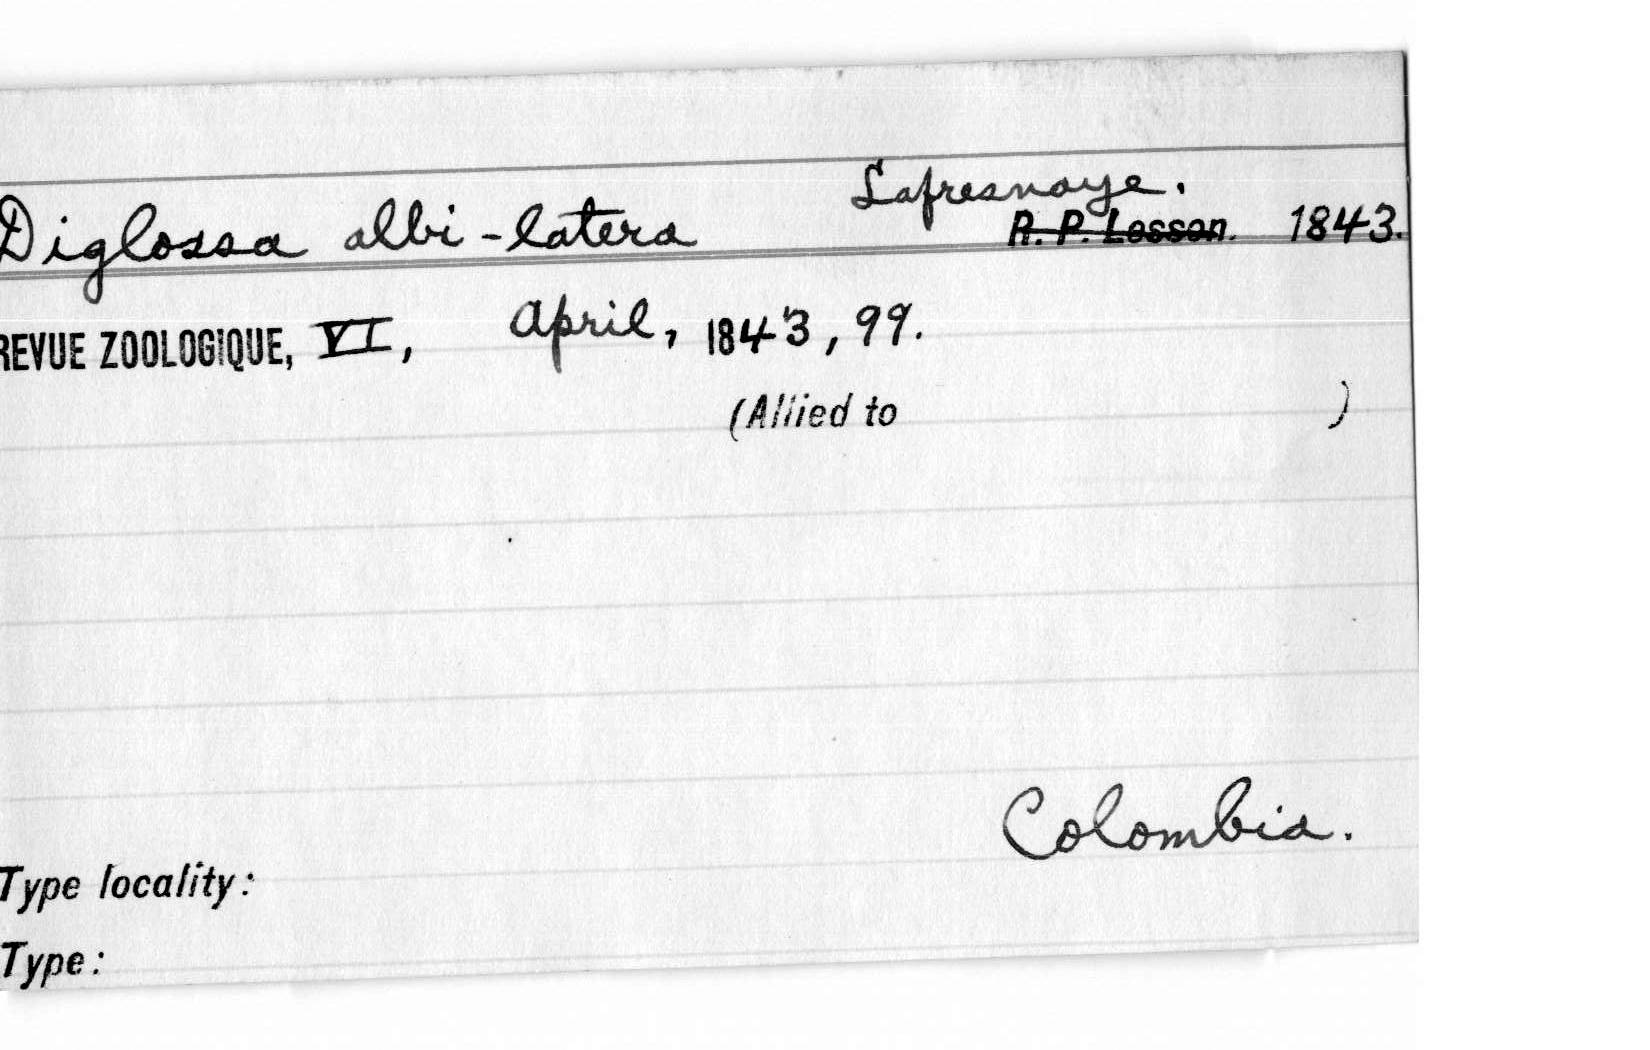 Lafresnaye.
Diglossa albi-latera R. P. Lesson. 1843.
REVUE ZOOLOGIQUE, VI, April, 1843, 99.
(Allied to )
Colombia.
Type locality:
Type: